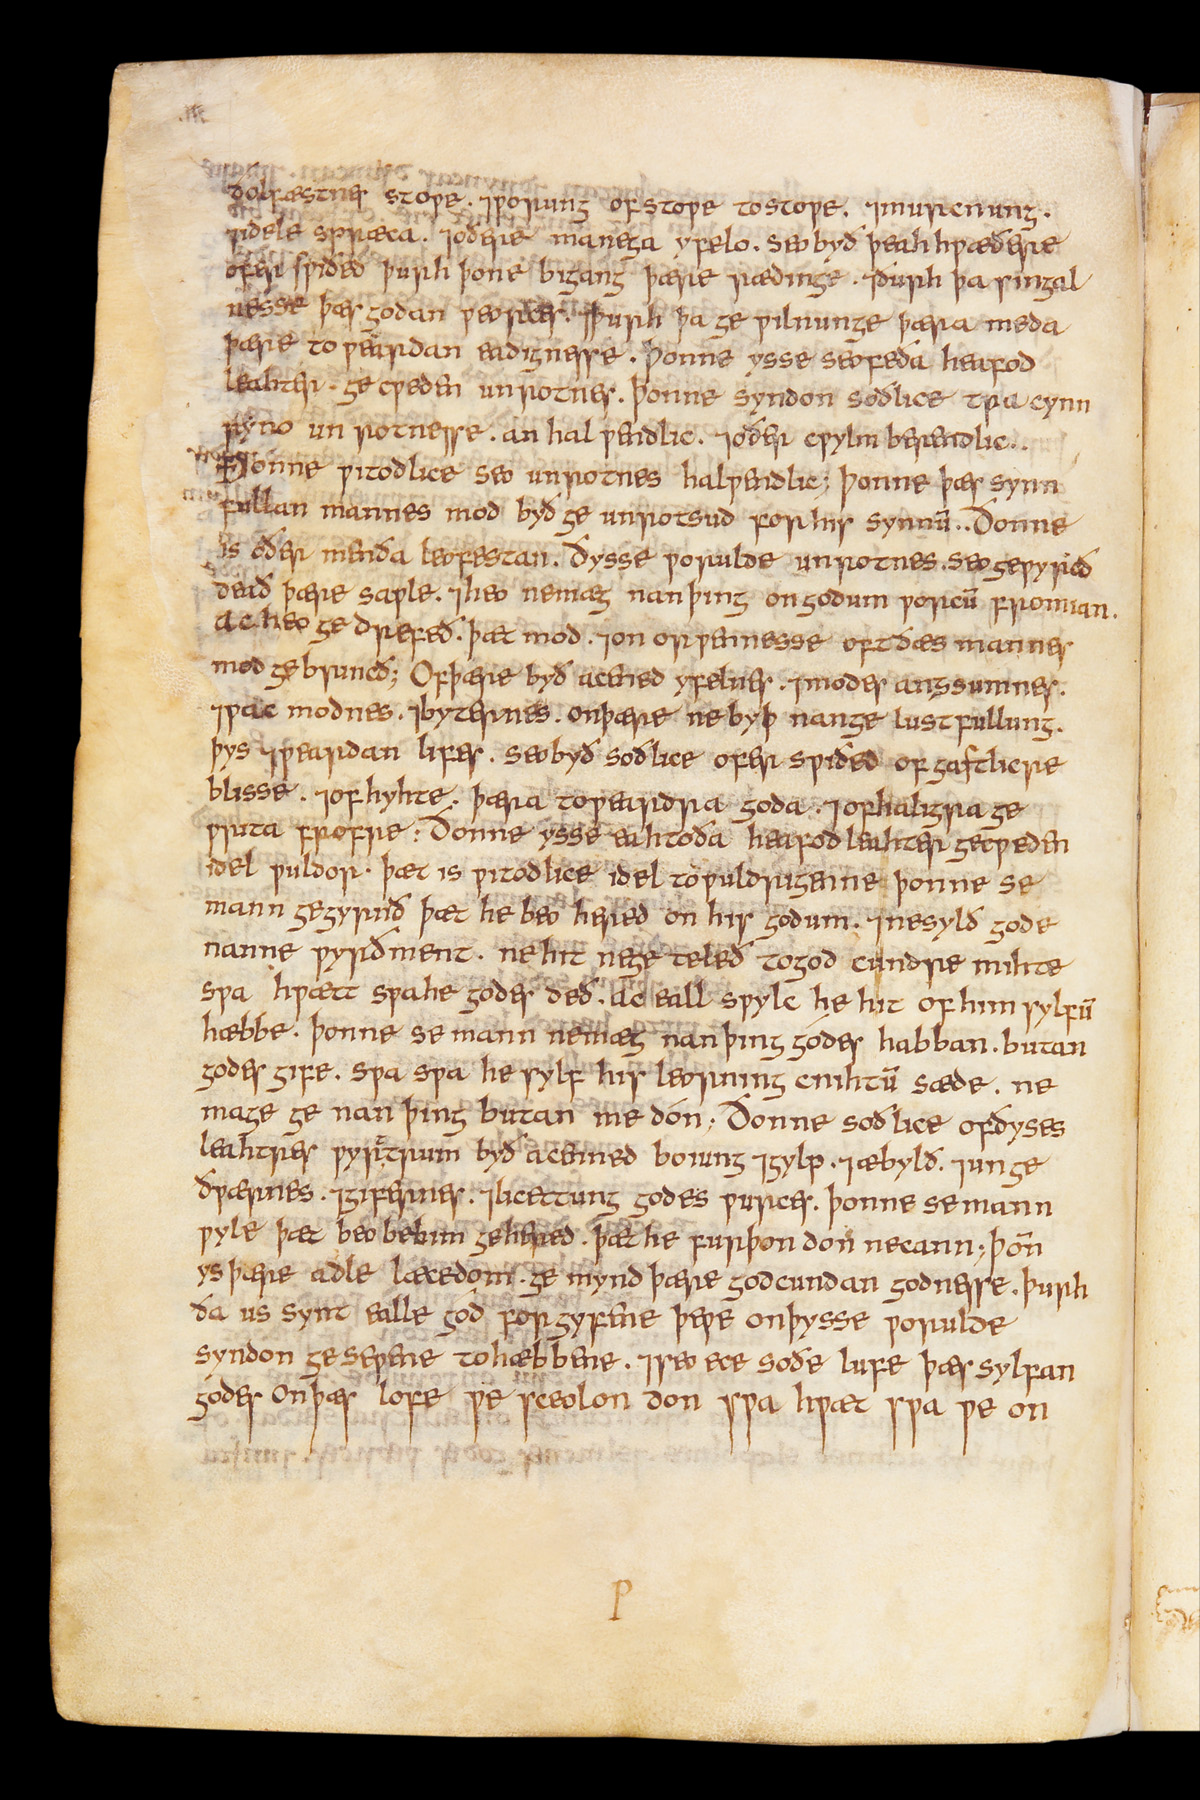 ðolfæstnes stoƿe . ⁊ƿorung ofstoƿe tostoƿe . ⁊murcnung .
⁊idele spræca . ⁊oðere manega yfelo . seobyð þeah hƿæðere
ofer sƿiðed þurh þone bigang þære rædinge . ⁊ðurh þa singal
nesse þæs godan ƿeorces . ⁊þurh þa ge ƿilnunge þæra meda
þære to ƿeardan eadignesse . Þonne ysse seofeða heafod
leahter . ge cƿeden unrotnes . Þonne syndon soðlice tƿa cynn
ryno un rotnesse . an hal ƿendlic . ⁊oðer cƿylm berendlic ..
Ðonne ƿitodlice seo unrotnes halƿendlic ; þonne þæs synn
fullan mannes mod byð ge unrotsud for his synnū .. Ðonne
is oðer menda leofestan . Ðysse ƿorulde unrotnes . seo geƿyrcð
deað þære saƿle . ⁊heo nemæg nan þing on godum ƿorcū fromian .
ac heo ge drefeð . þæt mod . ⁊on orƿennesse oft ðæs mannes
mod gebrincð ; Ofþære byð acenned yfelnes . ⁊modes angsumnes .
⁊ƿac modnes . ⁊byternes . onþære ne byþ nan ge lustfullung .
þys ⁊ƿeardan lifes . seobyð soðlice ofer sƿiðed of gastlicre
blisse . ⁊ofhyhte . þæra toƿeardra goda . ⁊ofhaligra ge
ƿrita frofre : Ðonne ysse eahtoða heafod leahter gecƿeden
idel ƿuldor . þæt is ƿitodlice idel to ƿuldrigenne þonne se
mann gegyrnð þæt he beo hered on his godum . ⁊nesylð gode
nanne ƿyrðment . nehit nege teleð togod cundre mihte
sƿa hƿætt sƿahe godes deð . ac eall sƿylc he hit of him sylfū
hæbbe . þonne se mann nemæg nan þing godes habban . butan
godes gife . sƿa sƿa he sylf his leorning cnihtū sæde . ne
mage ge nan þing butan me dón ; Ðonne soðlice ofðyses
leahtres ƿyrtrum byð acenned boiung ⁊gylp . ⁊æbylð . ⁊unge
ðƿærnes . ⁊gifernes . ⁊licettung godes ƿurces . þonne se mann
ƿyle þæt beo behim gehered . þæt he furþon don necann ; þoñ
ys þære adle læcedom . ge mynd þære godcundan godnesse . þurh
ða us synt ealle god forgyfene þeƿe onþysse ƿorulde
syndon ge seƿene tohæbbene . ⁊seo ece soðe lufe þæs sylfan
godes On þæs lofe ƿe sceolon don sƿa hƿæt sƿa ƿe on
P